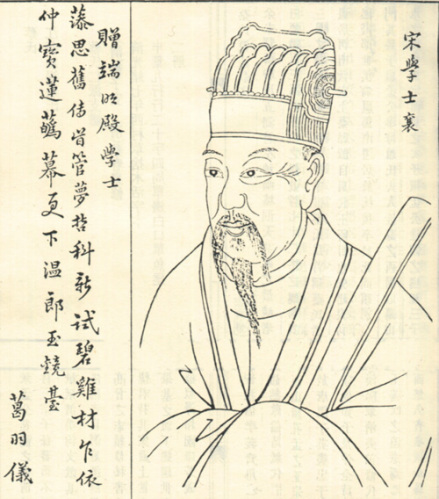 宋學士襄
贈端明殿學士
藻思舊傳青管夢哲科新試碧雞材乍依
仲寶蓮蘤幕更下温郎玉鏡臺
葛羽儀